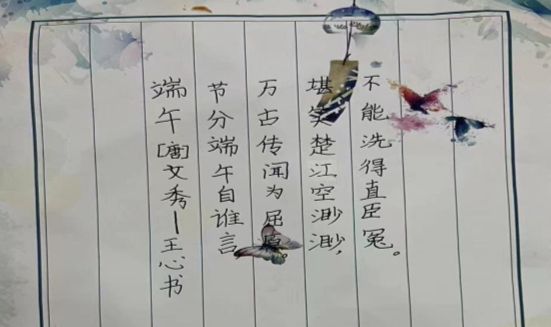 端午[唐]文秀—王心书
节分端午自谁言
万古传闻为屈原。
堪笑楚江空渺渺,
不能洗得直臣冤。